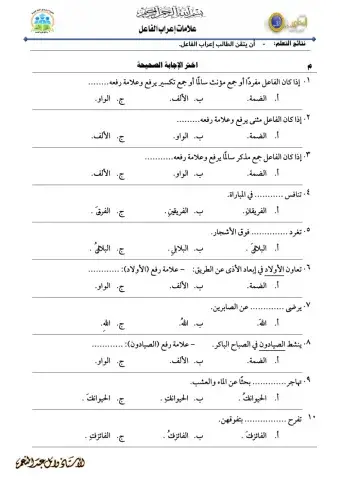 بسم الله الرحمن الرحيم
علامات إعراب الفاعل
نتائج التعلم: - أن يتقن الطالب إعراب الفاعل.
م اختر الإجابة الصحيحة
٠١ إذا كان الفاعل مفردًا أو جمع مؤنث سالمًا أو جمع تكسير يرفع وعلامة رفعه........
أ. الضمة. ب. الألف. ج. الواو.
٠٢ إذا كان الفاعل مثنى يرفع وعلامة رفعه.........
أ. الضمة. ب. الواو. ج. الألف.
٠٣ إذا كان الفاعل جمع مذكر سالمًا يرفع وعلامة رفعه...........
أ. الضمة. ب. الواو. ج. الألف.
٠٤ تنافس ........... في المباراة.
أ. الفريقان. ب. الفريقين. ج. الفرق.
٠٥ تغرد .............. فوق الأشجار.
أ. البلابلَ. ب. البلابلِ. ج. البلابلُ.
٠٦ تعاون الأولاد في إبعاد الأذى عن الطريق: - علامة رفع (الأولاد): ............
أ. الضمة. ب. الألف. ج. الواو.
٠٧ يرضى ............. عن الصابرين.
أ. اللهَ. ب. اللهُ. ج. اللهِ.
٠٨ ينشط الصيادون في الصباح الباكر. - علامة رفع (الصيادون): ............
أ. الضمة. ب. الألف. ج. الواو.
٠٩ تهاجر............. بحثًا عن الماء والعشب.
أ. الحيواناتُ. ب. الحيواناتِ. ج. الحيواناتَ.
٠١٠ تفرح ................ بتفوقهن.
أ. الفائزاتَ. ب. الفائزاتُ. ج. الفائزاتِ.